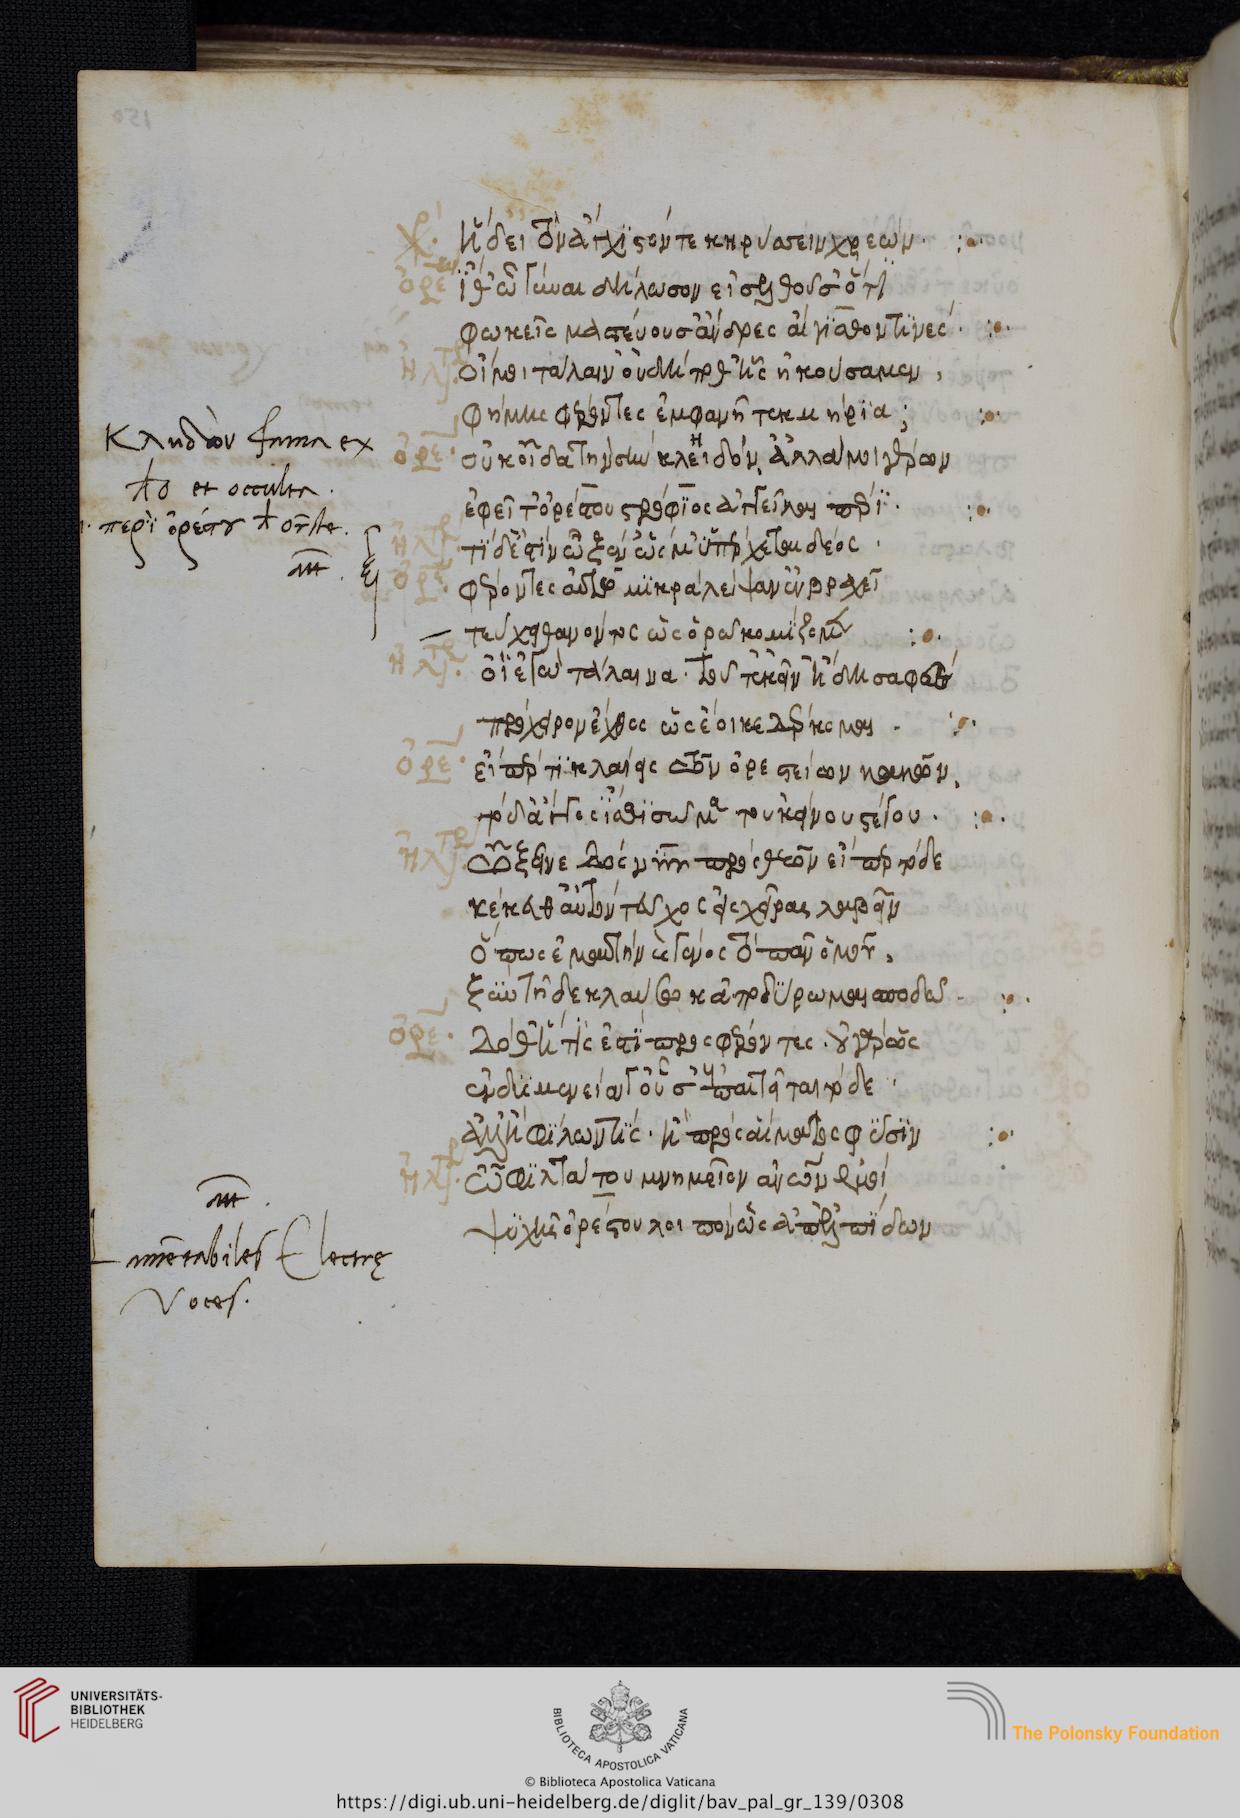 χο. ἥδ' εἰ τὸν ἄγχιστόν γε κηρύσσειν χρεών
ὀρε. ἴθ' ὦ γύναι δήλωσον εἰσελθοῦσ' ὅτι
φωκεῖς ματεύουσ' ἄνδρες αἴγισθον τινές
ἠλ. οἴμοι τάλαιν' οὐ δή ποθ' ἧς ἠκούσαμεν
φήμης φέροντες ἐμφανῆ τεκμήρια;
ὀρε. οὐκ οἶδα τὴν σὴν κληιδόν', ἀλλά μοι γέρων
ἐφεῖτ' ὀρέστου στρόφιος ἀγγεῖλαι πέρι
ἠλ. τί δ' ἔστιν ὦ ξέν' ὥς μ' ὑπέρχεται δέος
ὀρε. φέροντες αὐτοῦ μικρὰ λείψαν' ἐν βραχεῖ
τεύχει θανόντος ὡς ὁρᾷς κομίζομεν
ἠλ. οἲ ἐγὼ τάλαινα τοῦτ' ἐκεῖν' ἤδη σαφὲς
πρόχειρον ἄχθος ὡς ἔοικε δέρκομαι
ὀρε. εἴπερ τι κλαίεις τῶν ὀρεστείων κακῶν
τόδ' ἄγγος ἴσθι σῶμα τοὐκείνου στέγον
ἠλ. ὦ ξεῖνε δός νῦν πρὸς θεῶν εἴπερ τόδε
κέκευθ' αὐτὸν τεῦχος εἰς χεῖρας λαβεῖν
ὅπως ἐμαυτὴν καὶ γένος τὸ πᾶν ὁμοῦ
ξὺν τῇδε κλαύσω κἀποδύρωμαι σποδῷ
ὀρε. δόθ' ἥτις ἐστὶ προσφέροντες οὐ γὰρ ὡς
ἐν δυσμενείᾳ γ' οὖσ' ἐπαιτεῖται τόδε
ἀλλ' ἢ φίλων τις ἢ πρὸς αἵματος φύσιν
ἠλ. ὦ φιλτάτου μνημεῖον ἀνθρώπων ἐμοὶ
ψυχῆς ὀρέστου λοιπὸν ὥς σ' ἀπ' ἐλπίδων
Κληδὼν fama ex
et occulta.
περὶ ὀρέστου
Lamentabiles Electrę
voces.
150
UNIVERSITÄTS-
BIBLIOTHEK
HEIDELBERG
BIBLIOTECA APOSTOLICA VATICANA
The Polonsky Foundation
© Biblioteca Apostolica Vaticana
https://digi.ub.uni-heidelberg.de/diglit/bav_pal_gr_139/0308